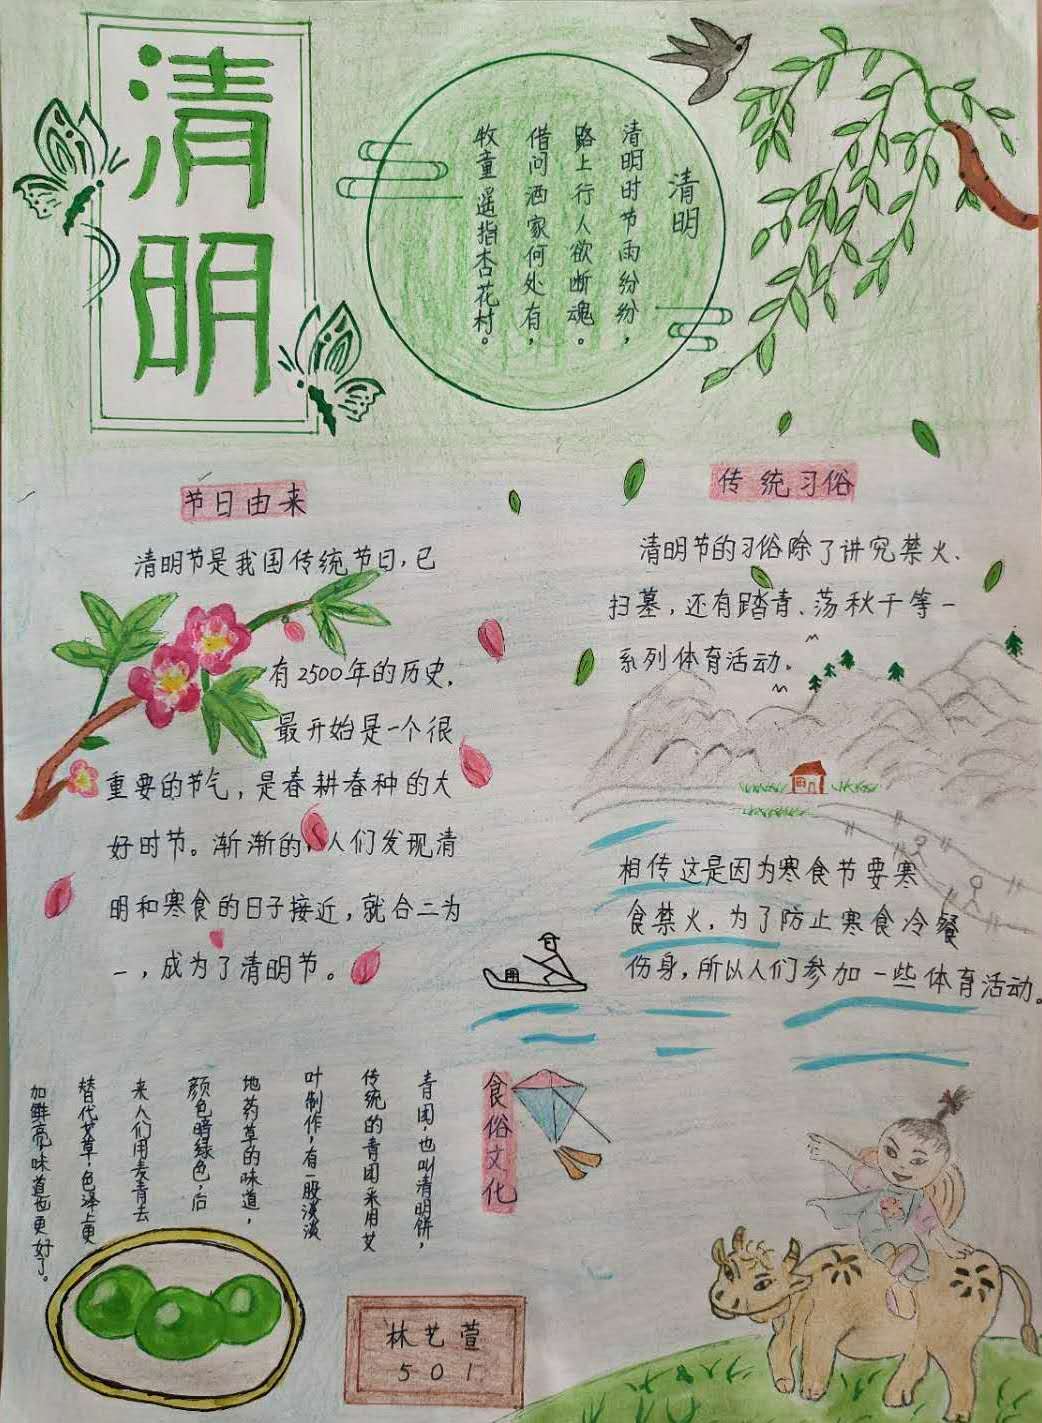 清明
清明
清明时节雨纷纷，
路上行人欲断魂。
借问酒家何处有，
牧童遥指杏花村。
节日由来
清明节是我国传统节日，已
有2500年的历史。
最开始是一个很
重要的节气，是春耕春种的大
好时节。渐渐的，人们发现清
明和寒食的日子接近，就合二为
一，成为了清明节。
传统习俗
清明节的习俗除了讲究禁火、
扫墓，还有踏青、荡秋千等一
系列体育活动。
相传这是因为寒食节要寒
食禁火，为了防止寒食冷餐
伤身，所以人们参加一些体育活动。
食俗文化
青团，也叫清明饼，
传统的青团采用艾
叶制作，有一股淡淡
地药草的味道，
颜色暗绿色，后
来人们用麦青去
替代艾草，色泽上更
加鲜亮，味道也更好了。
林艺萱
501